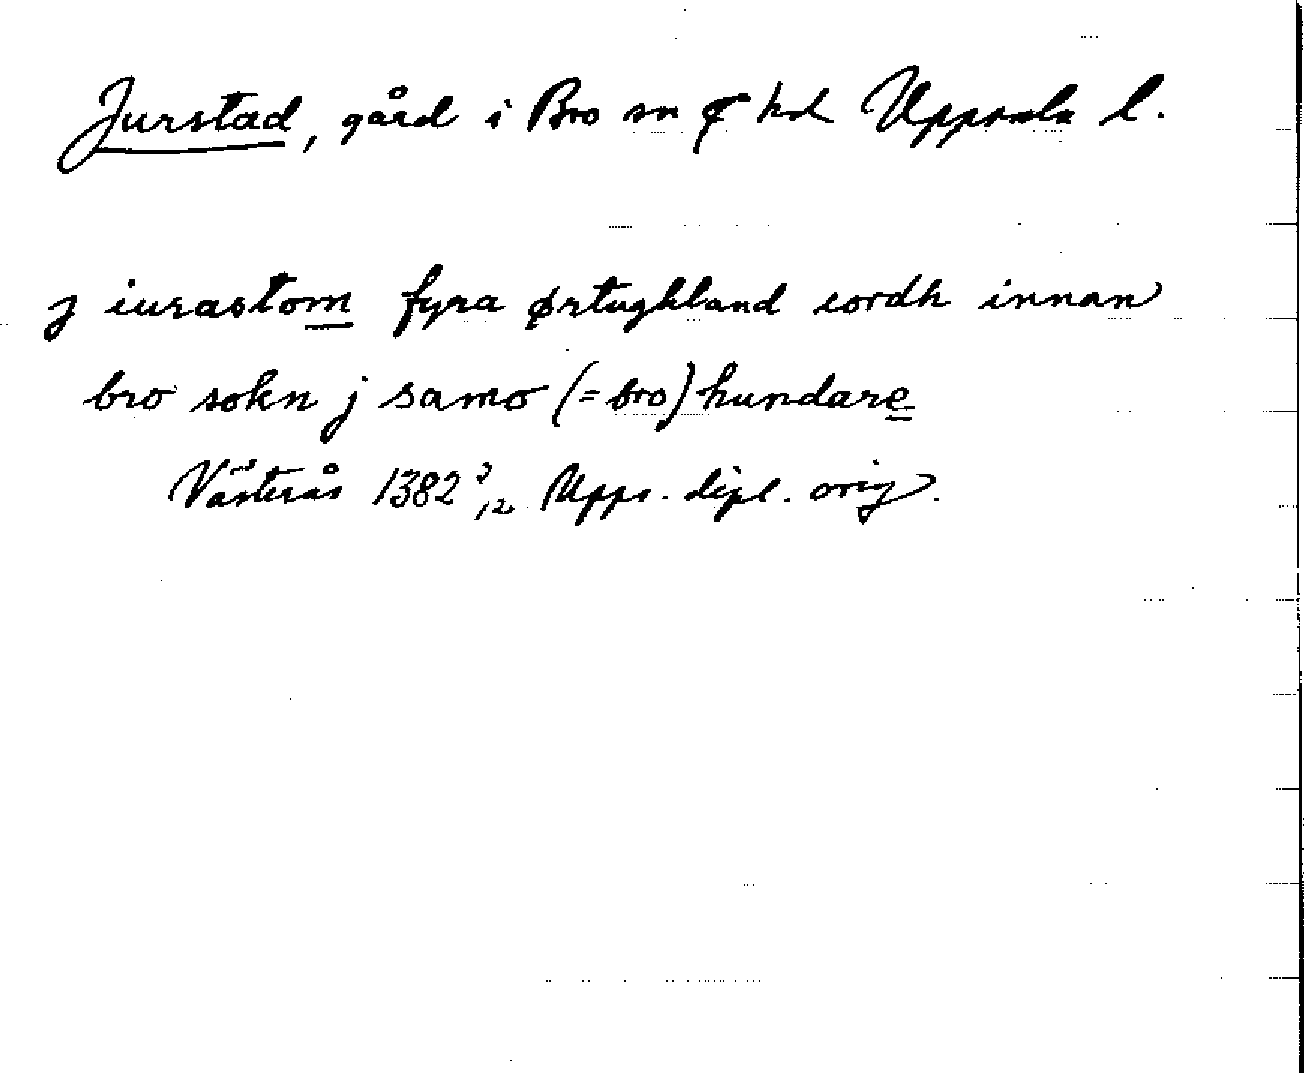 Jurstad, gård i Bro sn & hd Uppsala l.
j iurastom fyra ørtughland iordh innan
bro sokn j samo (= bro) hundare
Västerås 1382 3/12 Upps. dipl. orig.